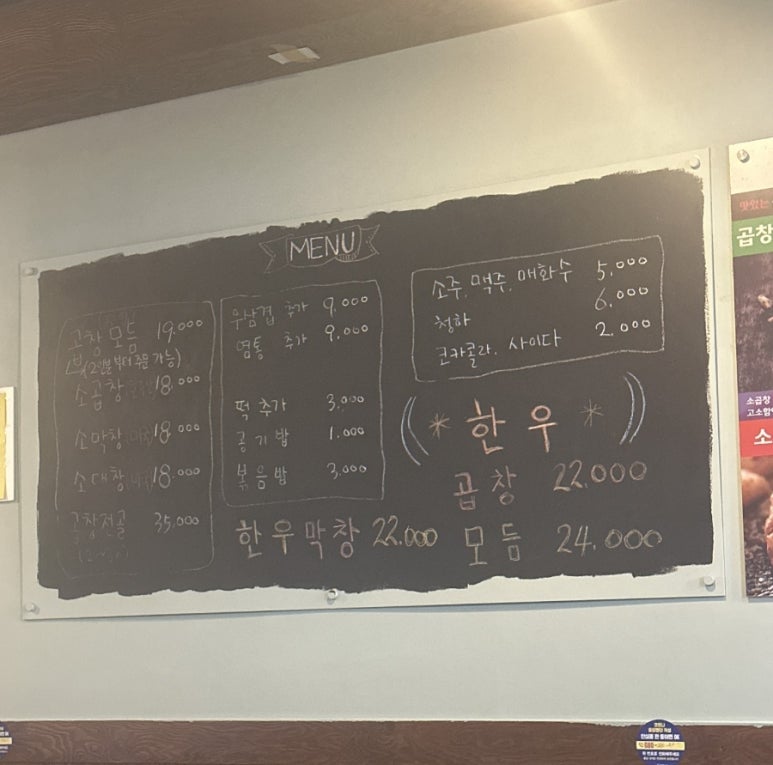 MENU
곱창모듬 19.000
(2인분부터 주문 가능)
소곱창 18.000
소막창 18.000
소대창 18.000
곱창전골 35,000
우삼겹 추가 9,000
염통 추가 9,000
떡 추가 3,000
공기밥 1.000
볶음밥 3,000
소주. 맥주. 매화수 5,000
청하 6,000
코카콜라. 사이다 2.000
* 한우 *
곱창 22.000
모듬 24.000
한우막창 22.000
맛있는
곱창
소곱창
소